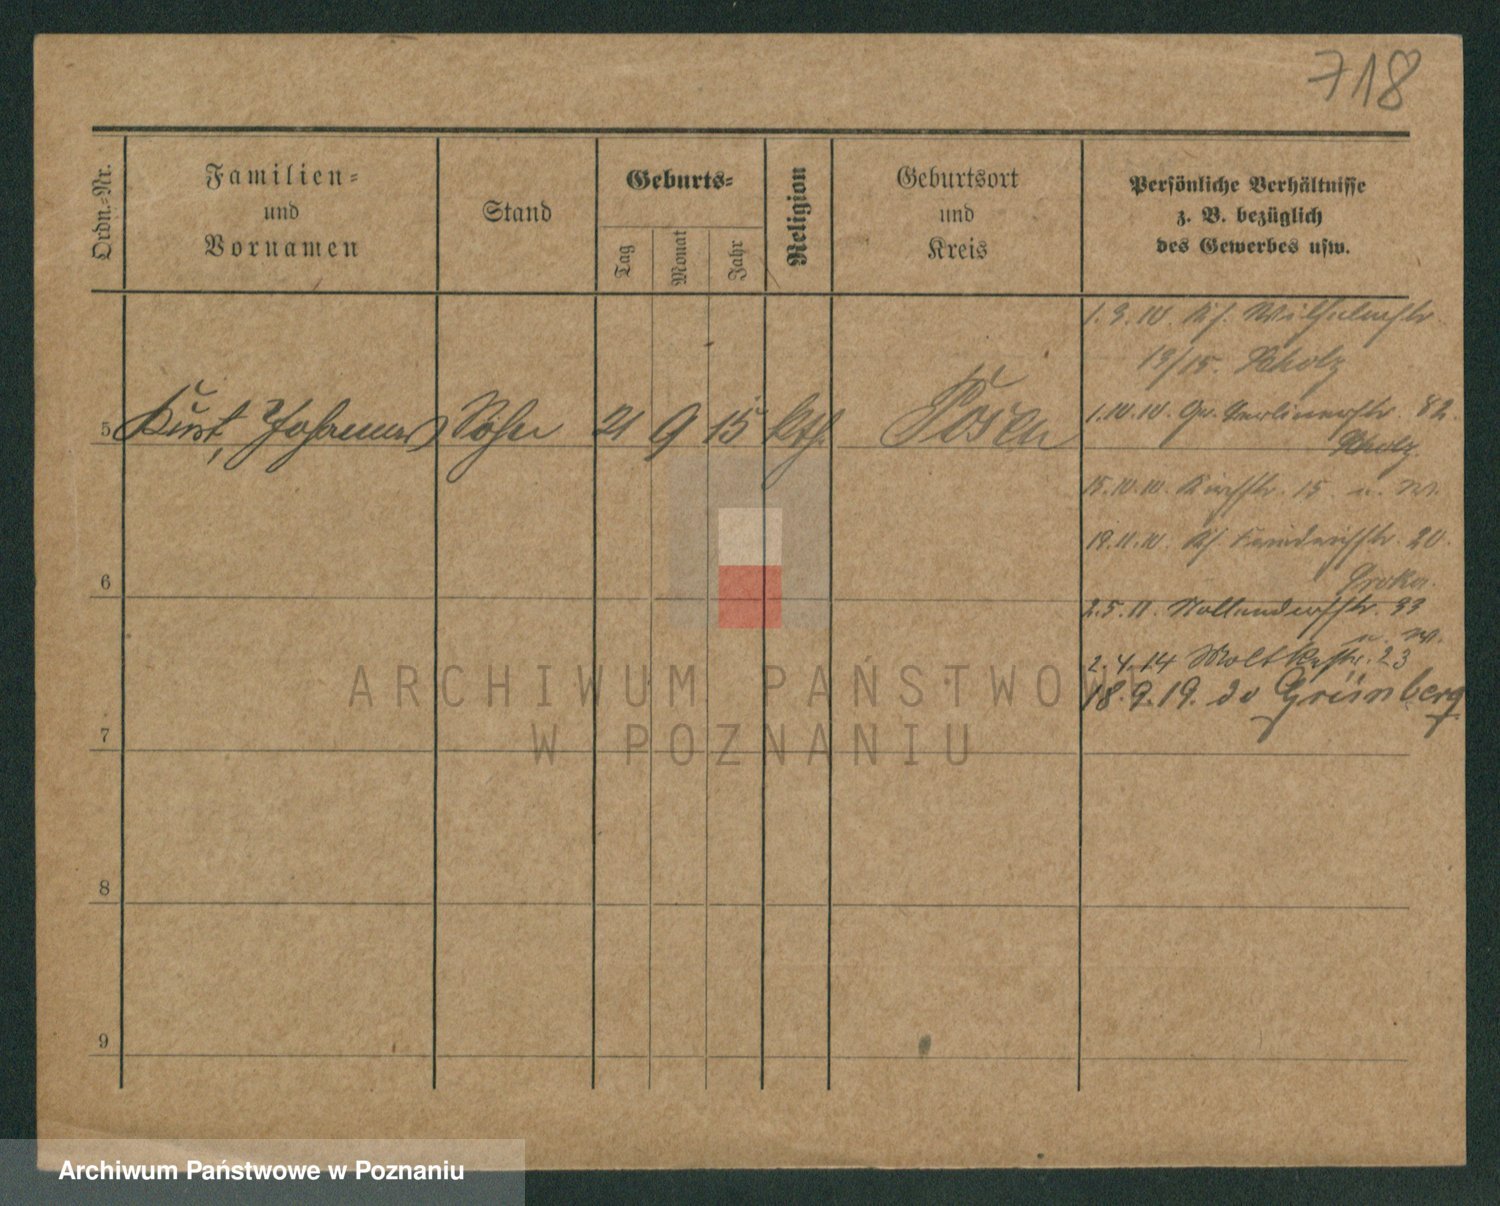 718
Ordn.-Nr.
Familien-
und
Vornamen
Stand
Geburts-
Tag
Monat
Jahr
Religion
Geburtsort
und
Kreis
Persönliche Verhältnisse
z. B. bezüglich
des Gewerbes usw.
1.9.10. Wilhelmstr.
13/15. Scholz
5 Kust, Johannes Sohn 21 9 15 kth. Posen
1.10.10. Gr. Berlinerstr. 82.
Scholz
15.10.10. Kirchstr. 15 u. W.
19.11.10. Friedrichstr. 20.
6
2.5.11. Nollendorfstr. 33
u. W.
2.4.14 Moltkestr. 23
18.9.19. Grünberg
7
8
9
ARCHIWUM PAŃSTWOWE
W POZNANIU
Archiwum Państwowe w Poznaniu